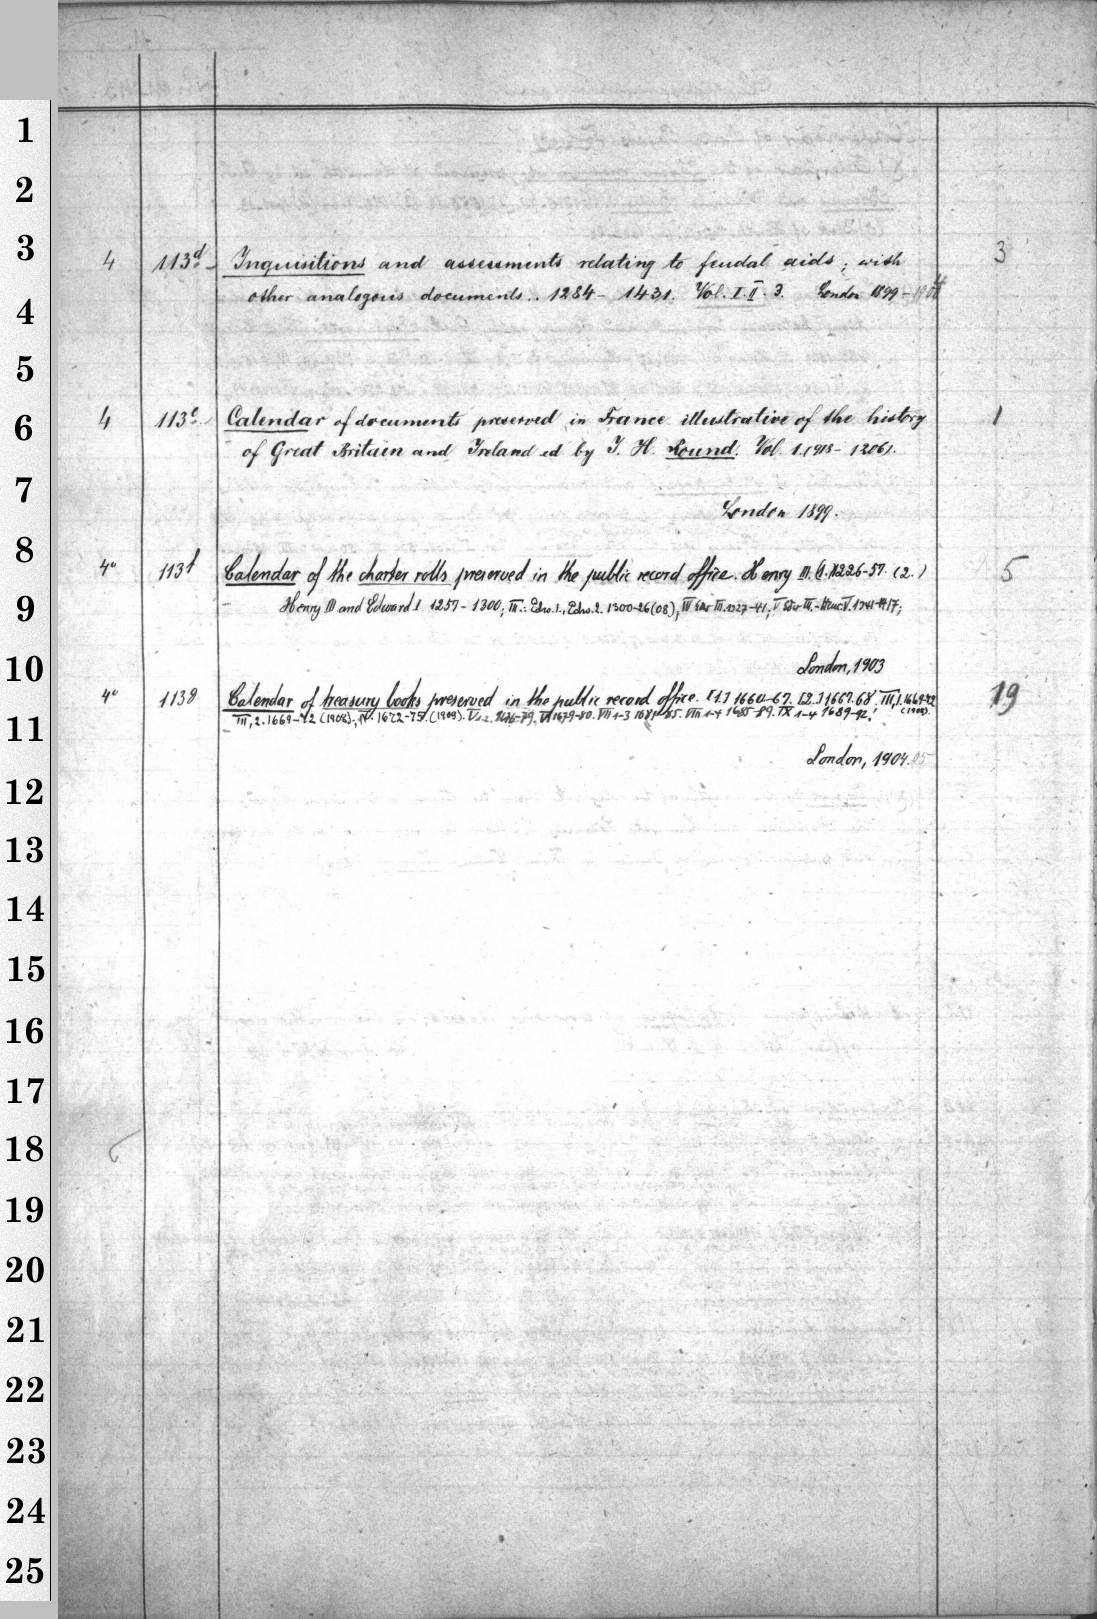 1
2
3
4 113d. Inquisitions and assessments relating to feudal aids; with 3
4
other analogous documents.. 1284- 1431. Vol. I. II. 3. London 1899-
5
6
4 113e. Calendar of documents preserved in France illustrative of the history 1
of Great Britain and Ireland ed by J. H. Round. Vol. 1. (918- 1206).
7
London 1899.
8
4° 113f Calendar of the charter rolls preserved in the public record office. Henry III. (1.) 1226-57. (2.) 5
9
Henry III and Edward I. 1257-1300; III.: Edw. 1., Edw. 2. 1300-26 (08); IV Edw III. 1327-41; V Edw III.-Henr V. 1341-1417;
10
London, 1903
4° 113g Calendar of treasury books preserved in the public record office. [1.] 1660-67. [2.] 1667.68. III,1. 1669-72 19
(1908).
11
III, 2. 1669-72 (1908). IV. 1672-75. (1909). V 1-2. 1676-79. VI 1679-80. VII 1-3 1681-85. VIII 1-4 1685-89. IX 1-4 1689-92.
London, 1904.05
12
13
14
15
16
17
18
19
20
21
22
23
24
25